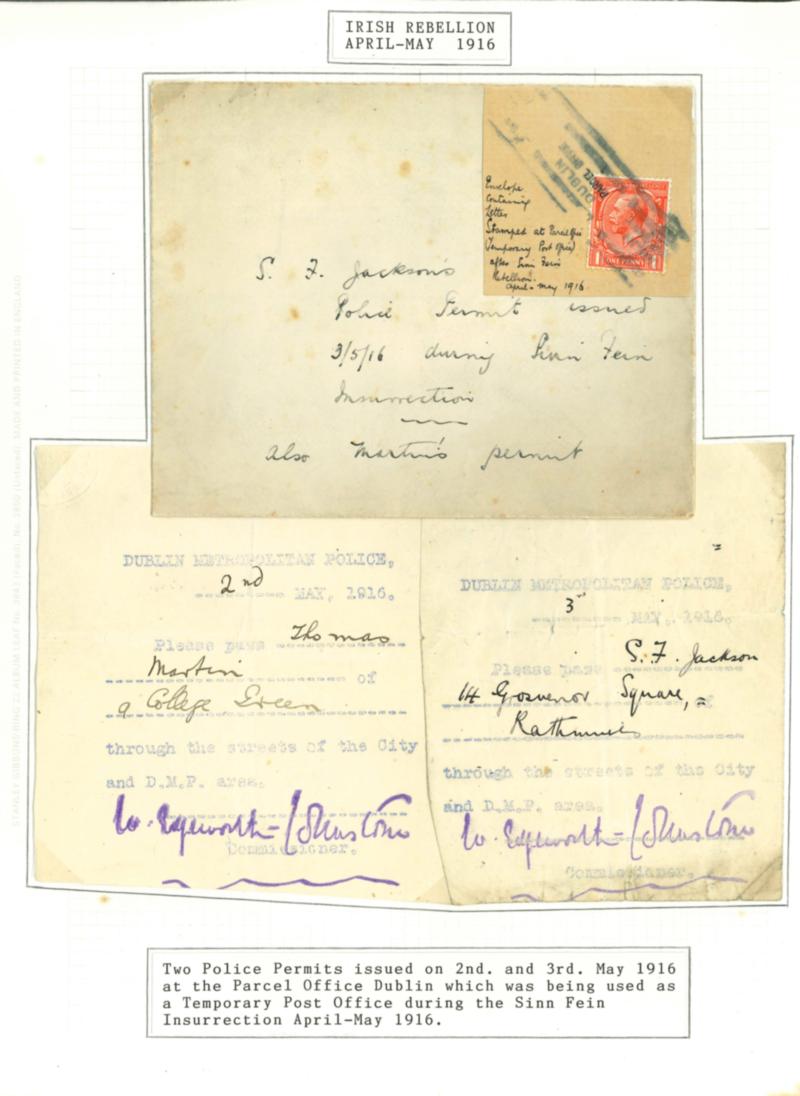 IRISH REBELLION
APRIL-MAY 1916
Envelope
containing
letter
Stamped at Parcel Office
(Temporary Post Office)
after Sinn Fein
Rebellion.
April - May 1916
DUBLIN
PARCEL
ONE PENNY
S. F. Jackson's
Police Permit issued
3/5/16 during Sinn Fein
Insurrection
also Martin's permit
DUBLIN METROPOLITAN POLICE,
2nd MAY, 1916.
Please pass Thomas
Martin of
9 College Green
through the streets of the City
and D.M.P. area.
W. Edgeworth-Johnstone
Commissioner.
DUBLIN METROPOLITAN POLICE,
3rd MAY, 1916.
Please pass S. F. Jackson
14 Grosvenor Square, =
Rathmines
through the streets of the City
and D.M.P. area.
W. Edgeworth-Johnstone
Commissioner.
Two Police Permits issued on 2nd. and 3rd. May 1916
at the Parcel Office Dublin which was being used as
a Temporary Post Office during the Sinn Fein
Insurrection April-May 1916.